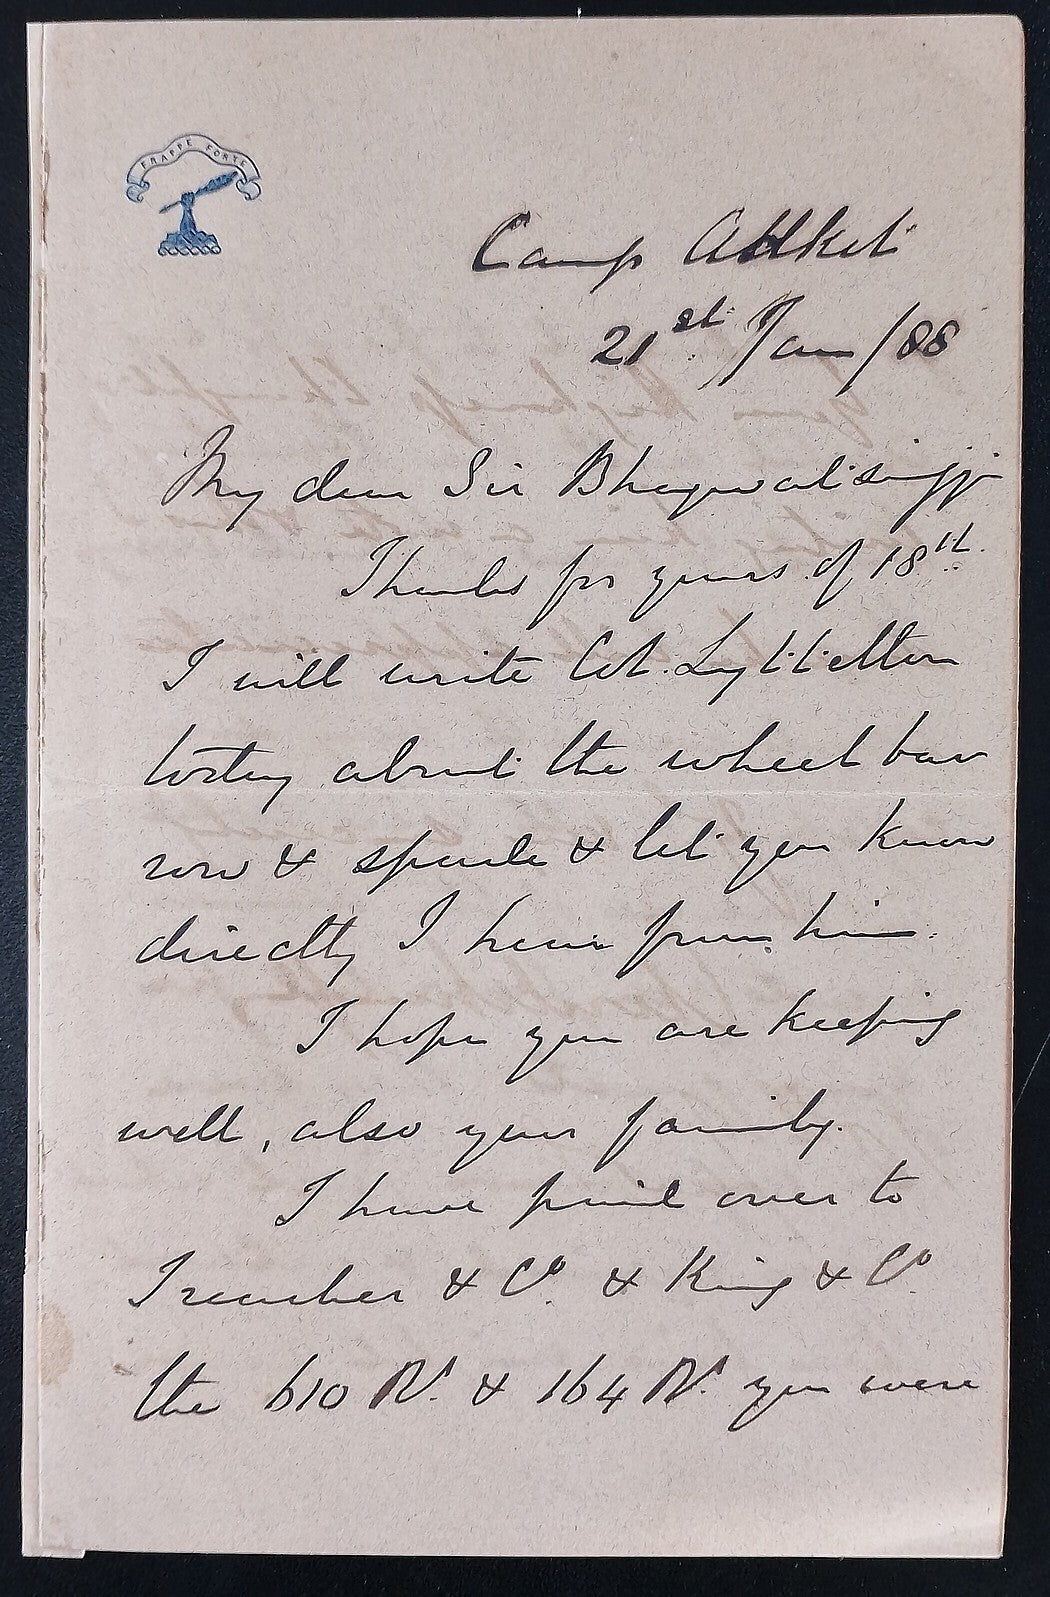 FRAPPE FORTE
Camp Adkot
21st Jan /88
My dear Sir Bhagwatsingji
Thanks for yours of 18th.
I will write Col. Lyttelton
today about the wheel bar
row & spade & let you know
directly I hear from him.
I hope you are keeping
well, also your family.
I have paid over to
Treacher & Co. & King & Co
the 610 Rs. & 164 Rs. you were